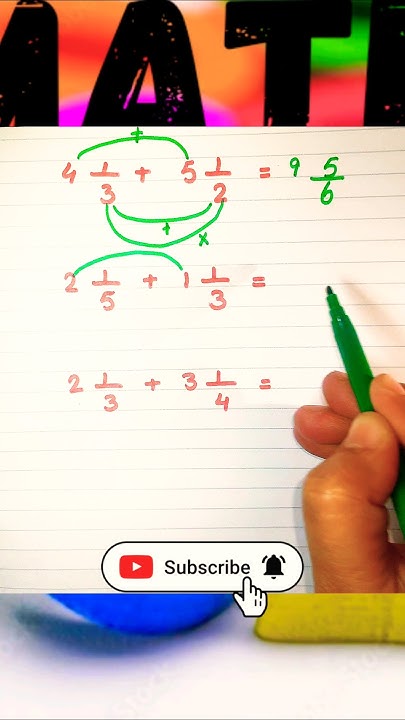 MATH
+
4 1/3 + 5 1/2 = 9 5/6
+
x
2 1/5 + 1 1/3 =
2 1/3 + 3 1/4 =
Subscribe